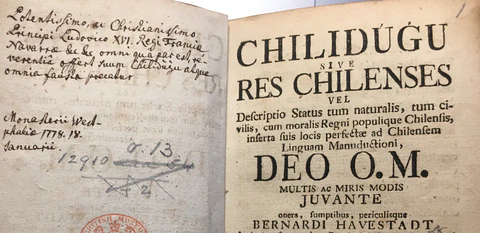 Potentissimo, ac Christianissimo
Principi Ludovico XVI. Regi Franciæ
Navarræ &c &c omni quâ par est, re-
verentiâ offert suum Chilidúgu atque
omnia fausta precatur
Monasterii West-
phaliæ 1778. 18.
Januarii.
12910
σ. 13
2
BRITISH MUSEUM
1
CHILIDÚGU
SIVE
RES CHILENSES
VEL
Descriptio Status tum naturalis, tum ci-
vilis, cum moralis Regni populique Chilensis,
inserta suis locis perfectæ ad Chilensem
Linguam Manuductioni,
DEO O.M.
MULTIS AC MIRIS MODIS
JUVANTE
opera, sumptibus, periculisque
BERNARDI HAVESTADT